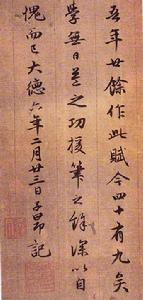 吾年廿餘作此賦今四十有九矣
學無日益之功援筆之餘深以自
愧而已大德六年二月廿三日子昂記